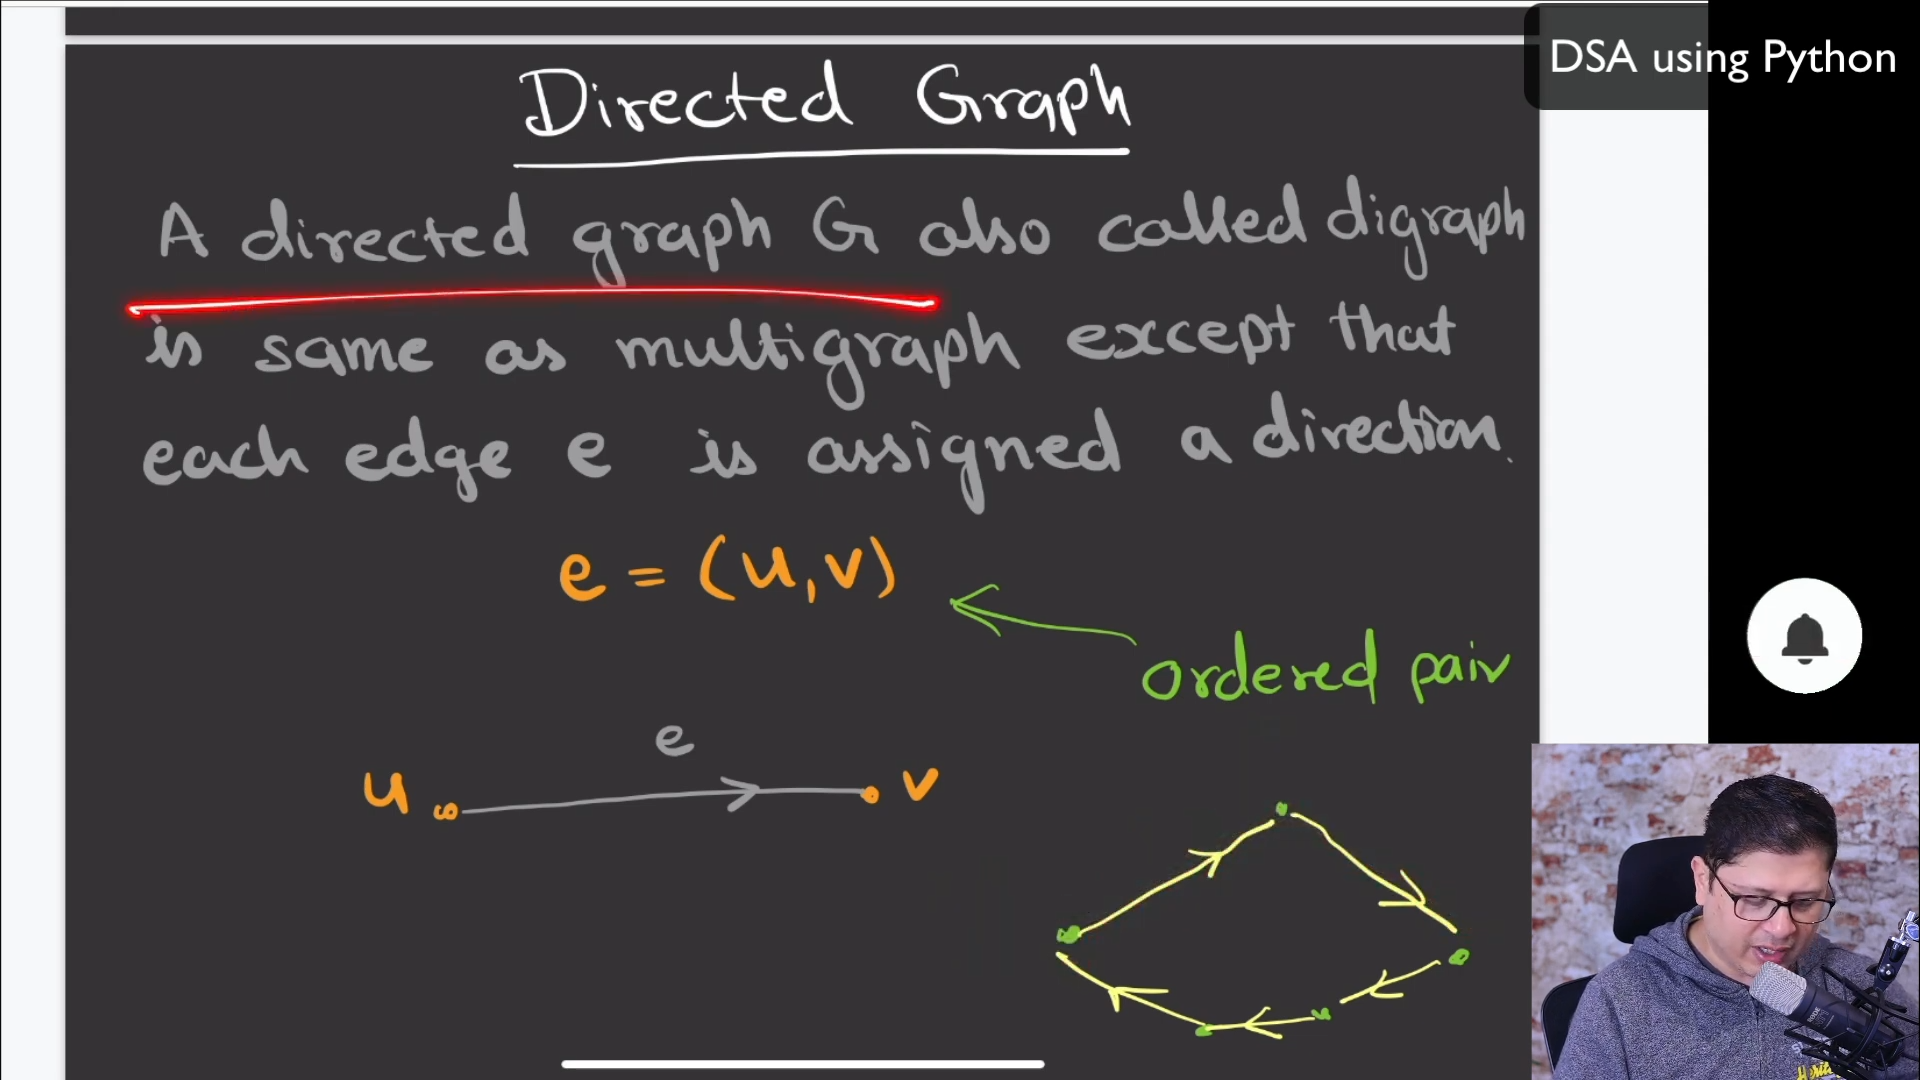 DSA using Python
Directed Graph
A directed graph G also called digraph
is same as multigraph except that
each edge e is assigned a direction.
e = (u,v)
ordered pair
e
u
v